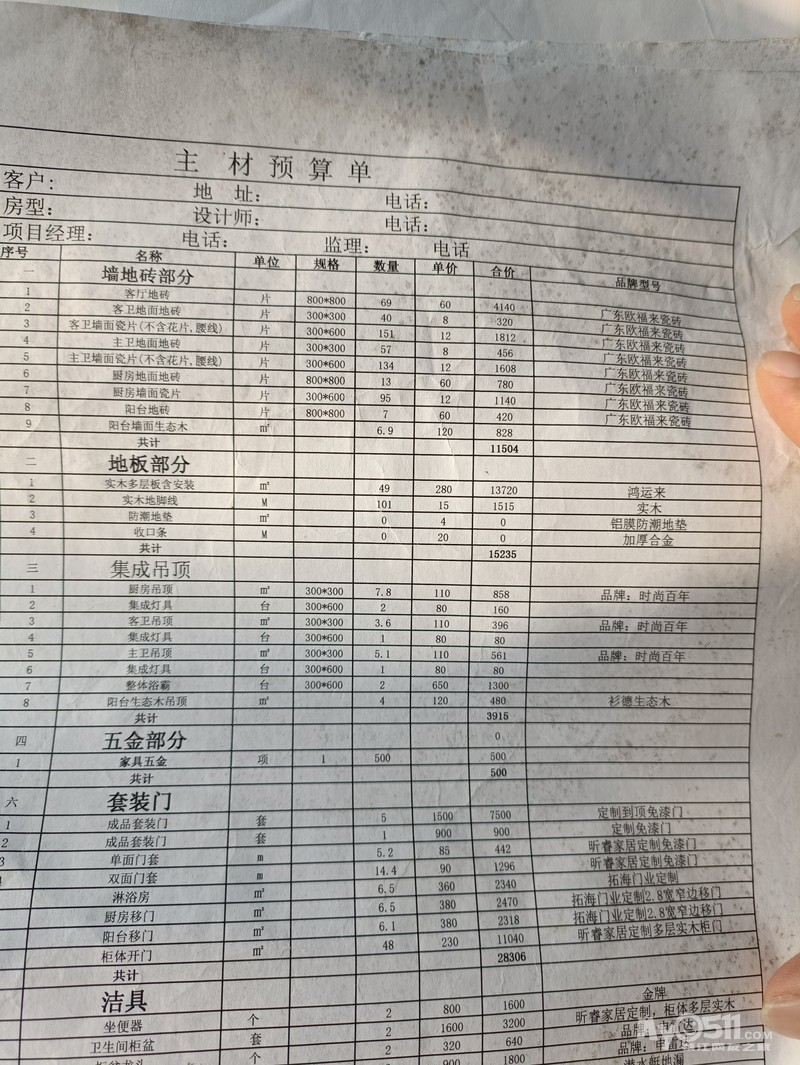 主材预算单
客户: 地址: 电话:
房型: 设计师: 电话:
项目经理: 电话: 监理: 电话
序号 名称 单位 规格 数量 单价 合价 品牌型号
一 墙地砖部分
1 客厅地砖 片 800*800 69 60 4140 广东欧福来瓷砖
2 客卫地面地砖 片 300*300 40 8 320 广东欧福来瓷砖
3 客卫墙面瓷片(不含花片,腰线) 片 300*600 151 12 1812 广东欧福来瓷砖
4 主卫地面地砖 片 300*300 57 8 456 广东欧福来瓷砖
5 主卫墙面瓷片(不含花片,腰线) 片 300*600 134 12 1608 广东欧福来瓷砖
6 厨房地面地砖 片 800*800 13 60 780 广东欧福来瓷砖
7 厨房墙面瓷片 片 300*600 95 12 1140 广东欧福来瓷砖
8 阳台地砖 片 800*800 7 60 420 广东欧福来瓷砖
9 阳台墙面生态木 ㎡ 6.9 120 828
共计 11504
二 地板部分
1 实木多层板含安装 ㎡ 49 280 13720 鸿运来
2 实木地脚线 M 101 15 1515 实木
3 防潮地垫 ㎡ 0 4 0 铝膜防潮地垫
4 收口条 M 0 20 0 加厚合金
共计 15235
三 集成吊顶
1 厨房吊顶 ㎡ 300*300 7.8 110 858 品牌：时尚百年
2 集成灯具 台 300*600 2 80 160
3 客卫吊顶 ㎡ 300*300 3.6 110 396 品牌：时尚百年
4 集成灯具 台 300*600 1 80 80
5 主卫吊顶 ㎡ 300*300 5.1 110 561 品牌：时尚百年
6 集成灯具 台 300*600 1 80 80
7 整体浴霸 台 300*600 2 650 1300
8 阳台生态木吊顶 ㎡ 4 120 480 衫德生态木
共计 3915
四 五金部分 0
1 家具五金 项 1 500 500
共计 500
六 套装门
1 成品套装门 套 5 1500 7500 定制到顶免漆门
2 成品套装门 套 1 900 900 定制免漆门
3 单面门套 m 5.2 85 442 昕睿家居定制免漆门
双面门套 m 14.4 90 1296 昕睿家居定制免漆门
淋浴房 ㎡ 6.5 360 2340 拓海门业定制
厨房移门 ㎡ 6.5 380 2470 拓海门业定制2.8宽窄边移门
阳台移门 ㎡ 6.1 380 2318 拓海门业定制2.8宽窄边移门
柜体开门 ㎡ 48 230 11040 昕睿家居定制多层实木柜门
共计 28306
洁具
坐便器 个 2 800 1600 金牌
卫生间柜盆 套 2 1600 3200 昕睿家居定制，柜体多层实木
个 2 320 640 品牌：
900 1800 品牌：申雷达
潜水艇地漏